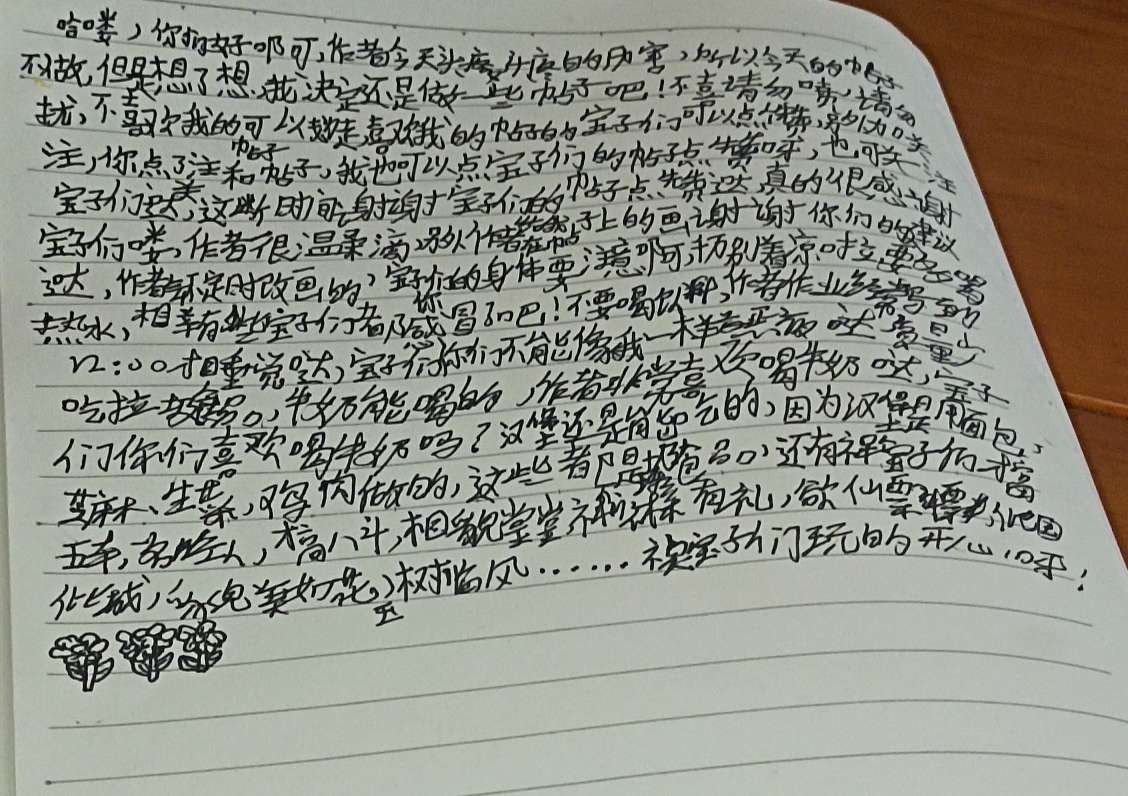 哈喽，你们好啊可，作者今天头疼头疼的厉害，所以今天的帖子
不做，但是想了想，我决定还是做一些帖子吧！不喜请勿喷，请勿
扰，不喜欢我的可以走，喜欢我的帖子的宝子们可以点赞，关
注，你点了注和帖子帖子，我也可以点宝子们的帖子点赞呀，也可关注
宝子们哒，这些时间谢谢宝子们的帖子点赞哒，真的很感谢
宝子们喽，作者很温柔滴，在帖子上的画谢谢你们的建议
哒，作者不定时改画的，宝子们的身体要注意啊可，扔别着凉啦要多喝
热水，相幸有些宝子们都感冒了吧！不要喝饮料，作者作业经常写到
12:00才睡觉哒，宝子们你们不能像我一样哒，少
吃垃圾食品，牛奶能喝的，作者非常喜欢喝牛奶哒，宝子
们你们喜欢喝牛奶吗？汉堡还是能吃的，因为汉堡是用面包、
芝麻、生菜、鸡肉做的，这些都是食品，还有祝宝子们才富
五车，才高八斗，相貌堂堂，有礼，欲仙
美如花，玉树临风……祝宝子们玩的开心呀！